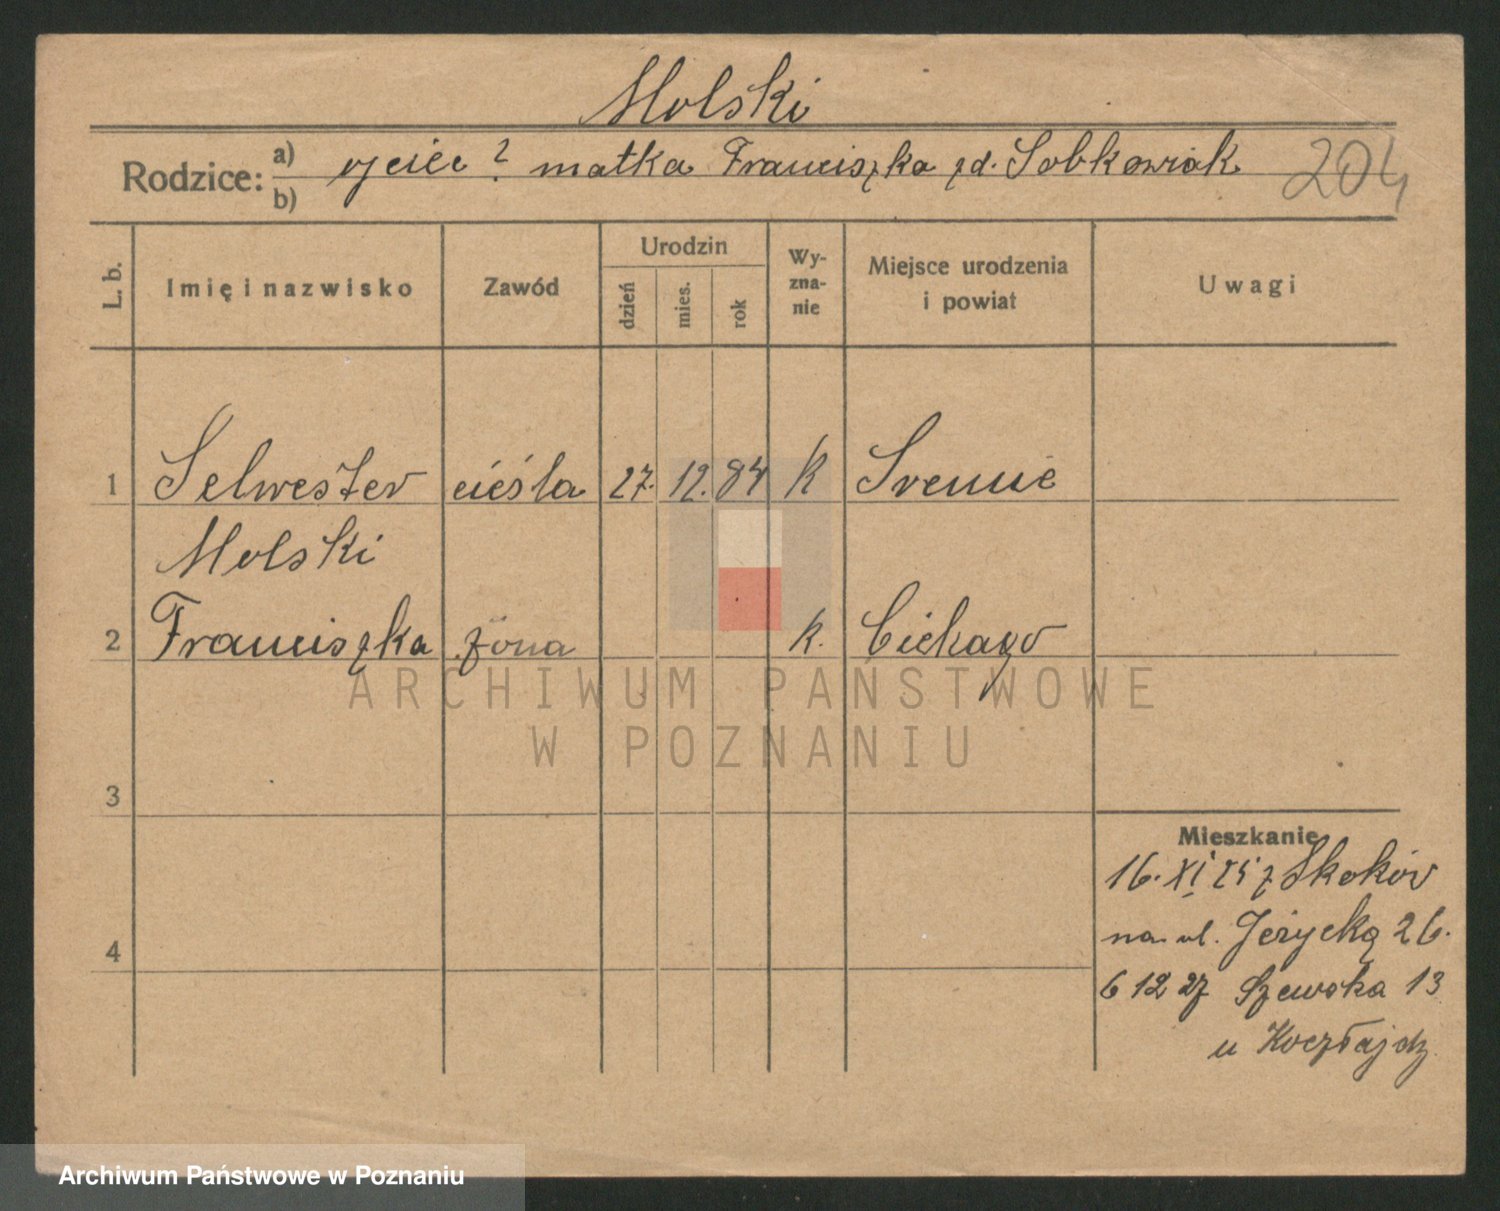 Molski
Rodzice: a) ojciec ? matka Franciszka zd. Sobkowiak 204
b)
L. b. Imię i nazwisko Zawód Urodzin dzień mies. rok Wy-zna-nie Miejsce urodzenia i powiat Uwagi
1 Selwester cieśla 27. 12. 84 K Sremie
Molski
2 Franciszka żona K. Cichago
ARCHIWUM PAŃSTWOWE
W POZNANIU
3
Mieszkanie
16. XI 25 z Skoków
na ul. Jeżycką 26.
4
6 12 27 Szewska 13
u
Archiwum Państwowe w Poznaniu